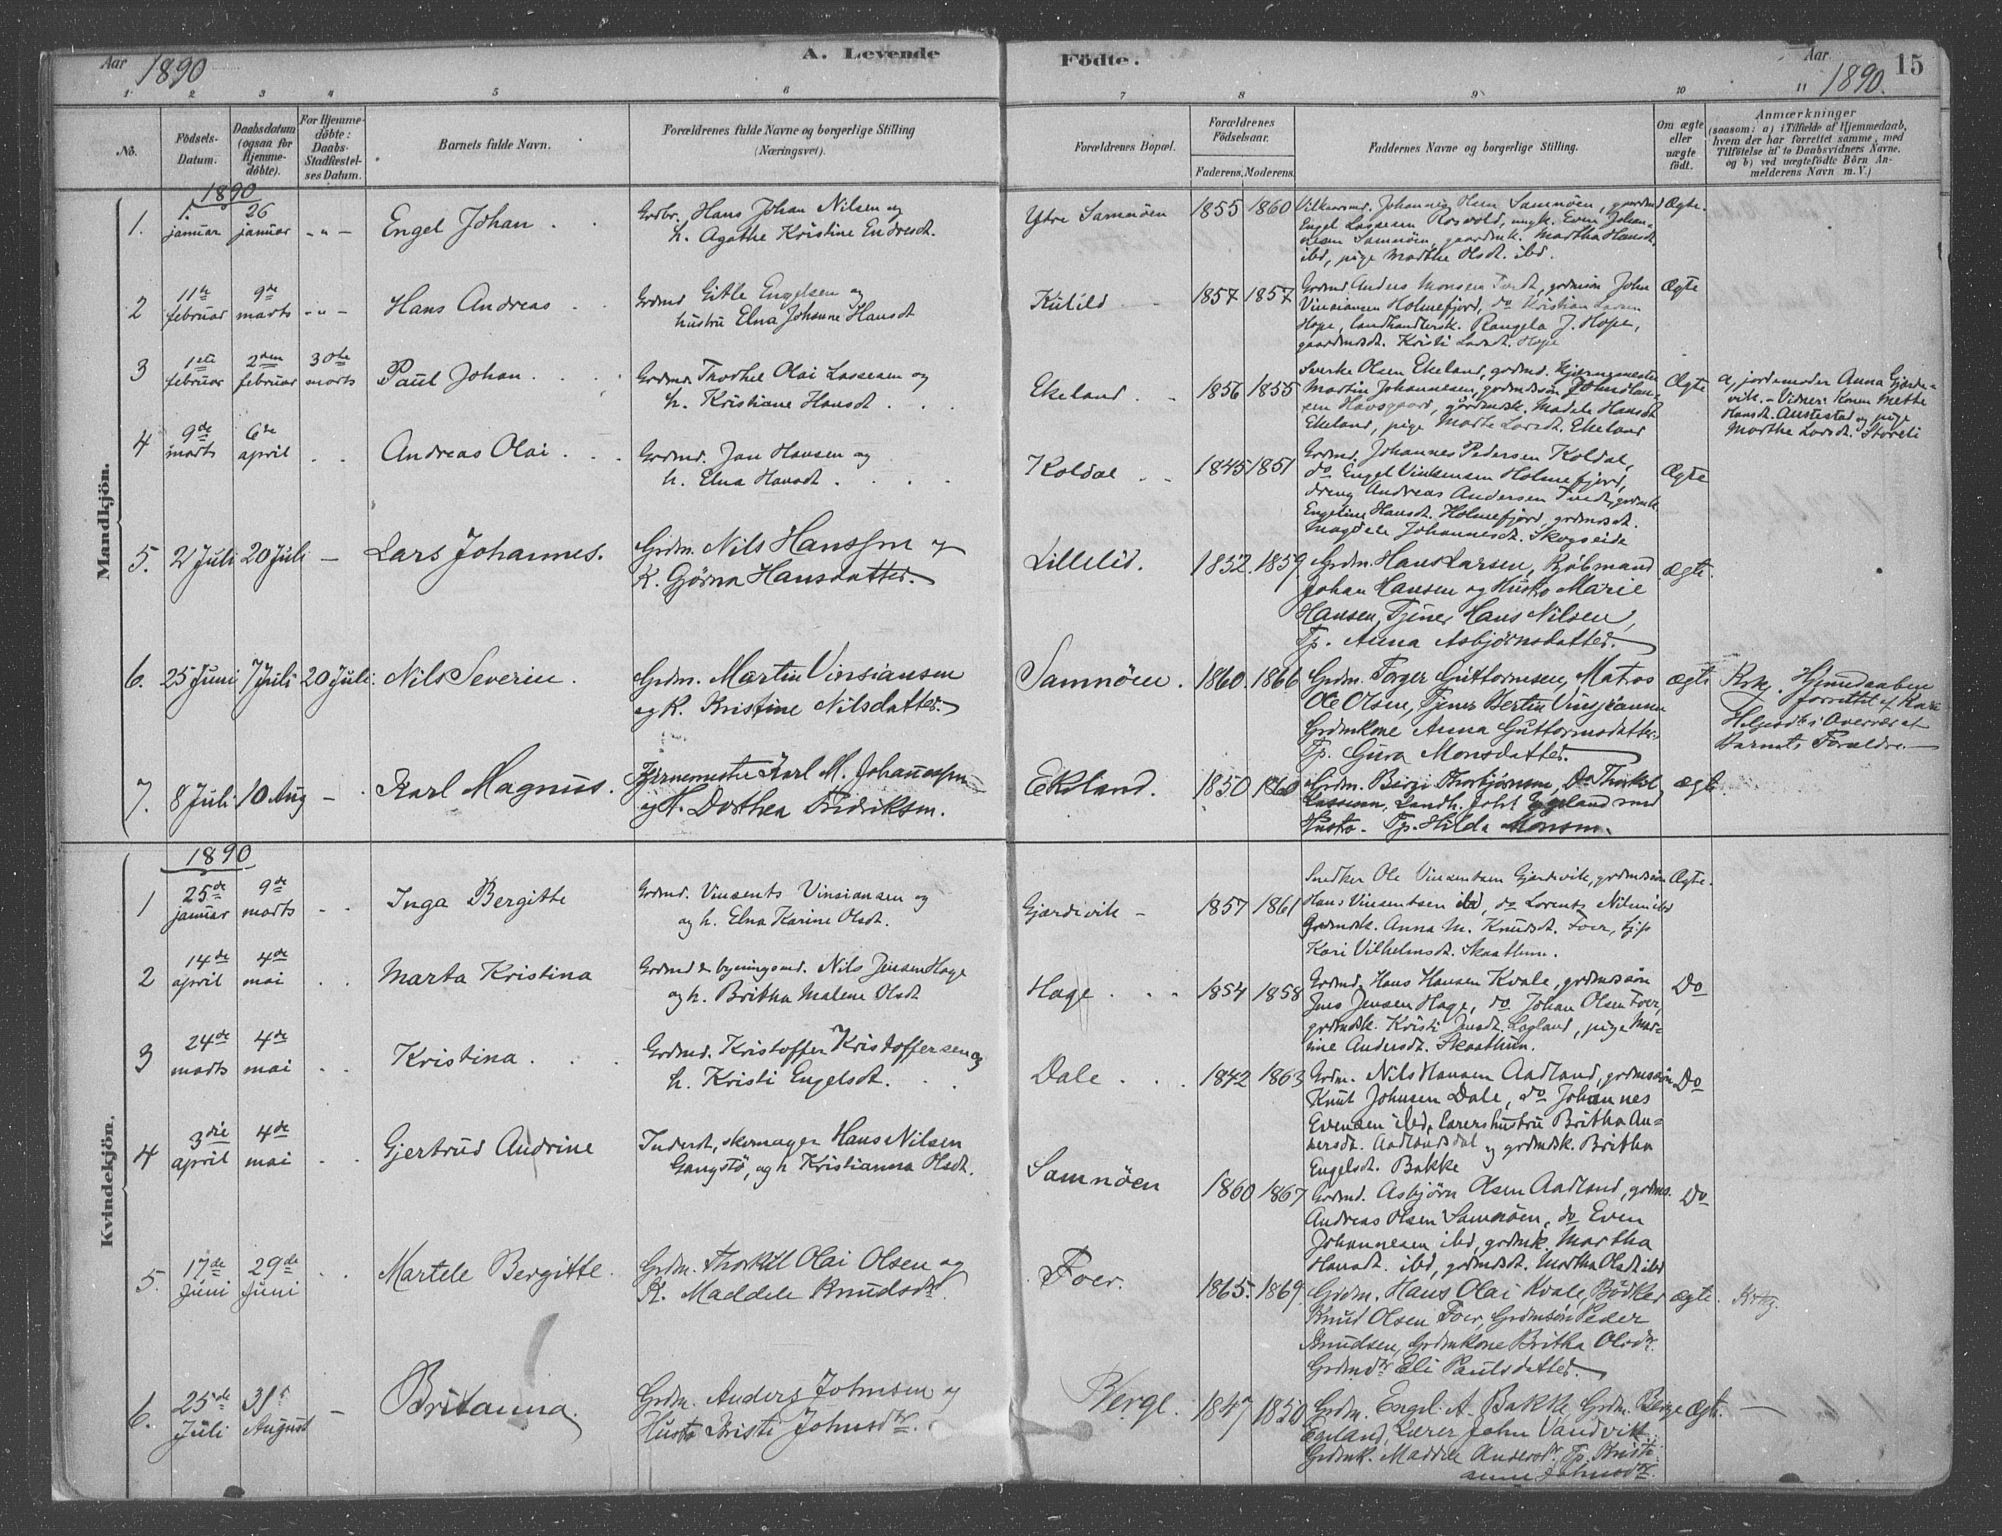 Aar 1890
A. Levende Födte.
Aar 1890. 15
1 2 3 4 5 6 7 8 9 10 11
No.
Födsels-
Datum.
Daabsdatum
(ogsaa for
Hjemme-
döbte).
For Hjemme-
döbte:
Daabs-
Stadfæstel-
ses Datum.
Barnets fulde Navn.
Forældrenes fulde Navne og borgerlige Stilling
(Næringsvei).
Forældrenes Bopæl.
Forældrenes
Födselsaar.
Faderens. Moderens.
Faddernes Navne og borgerlige Stilling.
Om ægte
eller
uægte
födt.
Anmærkninger
(saasom: a) i Tilfælde af Hjemmedaab,
hvem der har forrettet samme, med
Tilföielse af to Daabsvidners Navne,
og b) ved uægtefödte Börn An-
melderens Navn m. V.)
Mandkjön.
1890
1. 1. januar 26 januar - " - Engel Johan
Grdbr. Hans Johan Nilsen og
h. Agathe Kristine Endresdt.
Ytre Samnöen 1855 1860
Johannes Olsen Samnöen, gaardmd
Engel Lassesen Rosvold, ungk. Even Johan-
nesen Samnöen, gaardmk. Martha Hansdt.
ibd, pige Marthe Olsdt. ibd.
Ægte.
2 11te februar 9de marts - " - Hans Andreas
Grdmd Gitle Engelsen og
hustru Elna Johanne Hansdt
Kulild 1857 1857
Grdmd Anders Monsen Tvedt, grdmsön John
Vinsiansen Holmefjord, do Kristian Larsen
Hope, landhandlersk. Rangela J. Hope,
gaardmdt. Kristi Larsdt. Hope
Ægte
3 1ste februar 2den februar 30te marts Paul Johan
Grdmd. Thorkel Olai Lassesen og
h. Kristiane Hansdt.
Ekeland 1856 1855
Sverke Olsen Ekeland, grdmd. Kjærnemester
Martin Johannesen, grdmdsön Johan Han-
sen Havsgaard, grdmdsk. Madele Hansdt
Ekeland, pige Marte Larsdt. Ekeland
Ægte
a, jordemoder Anna Gjerde-
vik. - Vidner: Konen Mette
Hansdt. Austestad og pige
Marthe Larsdt. Storeli
4 9de marts 6te april Andreas Olai
Grdmd. Jan Hansen og
h. Elna Hansdt
Koldal 1845 1851
Grdmd. Johannes Pedersen Koldal,
do Engel Vinsensen Holmefjord,
dreng Andreas Andersen Tvedt, grdmk.
Engeline Hansdt. Holmefjord, grdmsdt.
Magdele Johannesdt. Skogseide
Ægte
5. 2 Juli 20 Juli - Lars Johannes.
Grdm. Nils Hanssen og
K. Gjörna Hansdatter.
Lillelid. 1852. 1859
Grdm. Hans Larsen, Kjöbmand
Johan Hansen og Hustro Marie
Hansen, Tjener Hans Nilsen,
Tp. Anna Asbjörnsdatter.
ægte.
6. 25 Juni 7 Juli 20 Juli. Nils Severin.
Grdm. Martin Vinsiansen
og K. Kristine Nilsdatter.
Samnöen. 1860. 1866
Grdm. Torger Guttormsen, Matros
Ole Olsen, Tjener Bertin Vinsjiansen
Grdmkone Anna Guttormsdatter
Tp. Gura Monsdatter.
ægte
Hjemdaaben
forrettet af Kari
i Overvær af
Barnets Forældre.
7. 8 Juli 10 Aug - Karl Magnus.
Kjernemester Karl M. Johannessen
og H. Dorthea Fredriksen.
Ekeland. 1850 1860
Grdm. Birgi Thorbjörnsen, Do Thorkel
Lassesen, Landh. Johs Egeland med
Hustro. Tp. Hilda Monsen.
ægte.
Kvindekjön.
1890
1 25de januar 9de marts Inga Bergitte
Grdmd. Vinsents Vinsiansen og
og h. Elna Karine Olsdt.
Gjærdivik - 1857 1861
Snedker Ole Vinsentsen Gjærdevik, grdmdsön
Hans Vinsentsen ibd, do Lorents Nilsen ibd
Grdmdsk. Anna M. Knudsdt. Foer,
Kari Vilhelmsdt. Skaathun.
Ægte.
2 14de april 4de mai Marta Kristina
Grdmd & bygningsmd. Nils Jensen Hage
og h. Britha Malene Olsdt
Hage. 1854 1858
Grdmd. Hans Hansen Kvale, grdmssön
Jens Jensen Hage, do Johan Olsen Foer,
grdmdsk. Kristi Jensdt. Lagland, pige Mar-
tine Andersdt. Skaathun.
Do
3 24de marts 4de mai Kristina
Grdmd. Kristoffer Kristoffersen og
h. Kristi Engelsdt.
Dale 1842 1863
Grdm. Nils Hansen Aadland, grdmssön
Knut Johnsen Dale, do Johannes
Evensen ibd, lærershustru Britha An-
dersdt. Aadlandsdal og grdmdsk Britha
Engelsdt. Bakke
Do
4 3die april 4de mai Gjertrud Andrine
Inderst, skomager Hans Nilsen
Gangstö, og h Kristianna Olsdt.
Samnöen 1860 1867
Grdmd. Asbjörn Olsen Aadland, grdms.
Andreas Olsen Samnöen, do Even
Johannesen ibd, grdmk. Martha
Hansdt. ibd, grdmsdt. Martha Olsdt ibd
Do
5. 17de Juni 29de Juni Martele Bergitte.
Grdm. Thorkel Olai Olsen og
K. Maddele Knudsdtr.
Foer. 1865. 1869
Grdm. Hans Olai Kvale, Bödker
Knud Olsen Foer, Grdmsön Peder
Knudsen, Grdmkone Britha Olsdtr.
Grdmdtr Eli Paulsdatter.
ægte.
6. 25de Juli 31te August - Britanna.
Grdm. Anders Johnsen og
Hustro Kristi Johnsdtr.
Berge. 1847 1850
Grdm. Engel A. Bakke, Grdm. Berge
Egeland, Lærer John Vandvik
Grdmk. Maddele Andersdtr. Tp. Kristi-
anna Johnsdtr.
Ægte. -